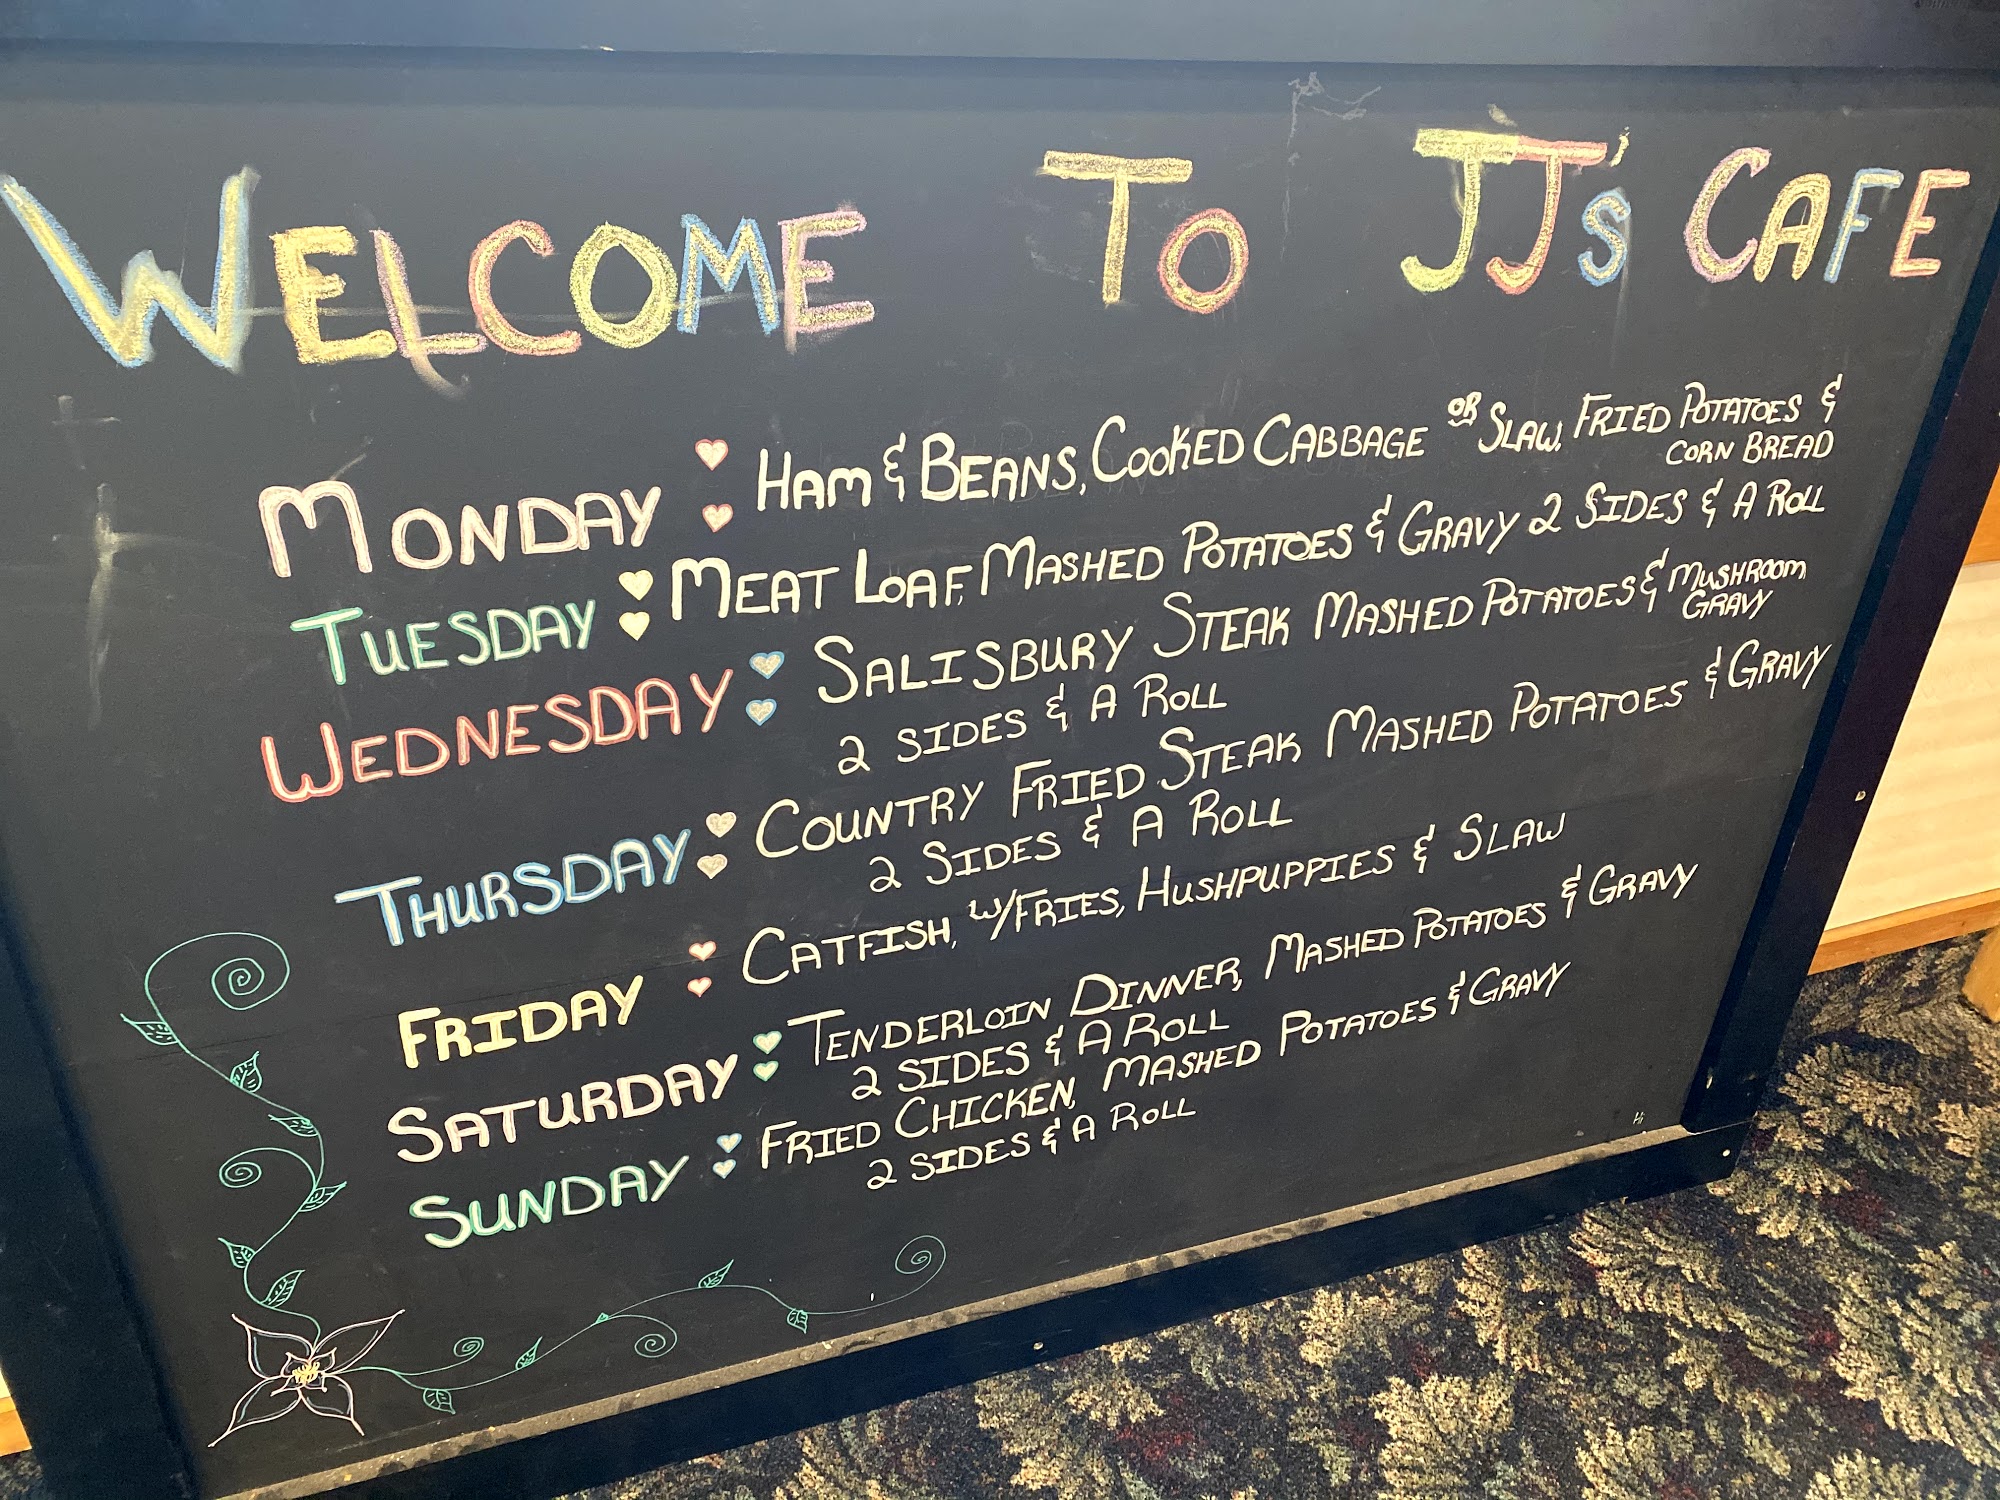 WELCOME TO JJ's CAFE
MONDAY : HAM & BEANS, COOKED CABBAGE OR SLAW, FRIED POTATOES &
CORN BREAD
TUESDAY : MEAT LOAF, MASHED POTATOES & GRAVY 2 SIDES & A ROLL
WEDNESDAY : SALISBURY STEAK MASHED POTATOES & MUSHROOM
GRAVY
2 SIDES & A ROLL
THURSDAY : COUNTRY FRIED STEAK MASHED POTATOES & GRAVY
2 SIDES & A ROLL
FRIDAY : CATFISH, W/FRIES, HUSHPUPPIES & SLAW
SATURDAY : TENDERLOIN DINNER, MASHED POTATOES & GRAVY
2 SIDES & A ROLL
SUNDAY : FRIED CHICKEN, MASHED POTATOES & GRAVY
2 SIDES & A ROLL